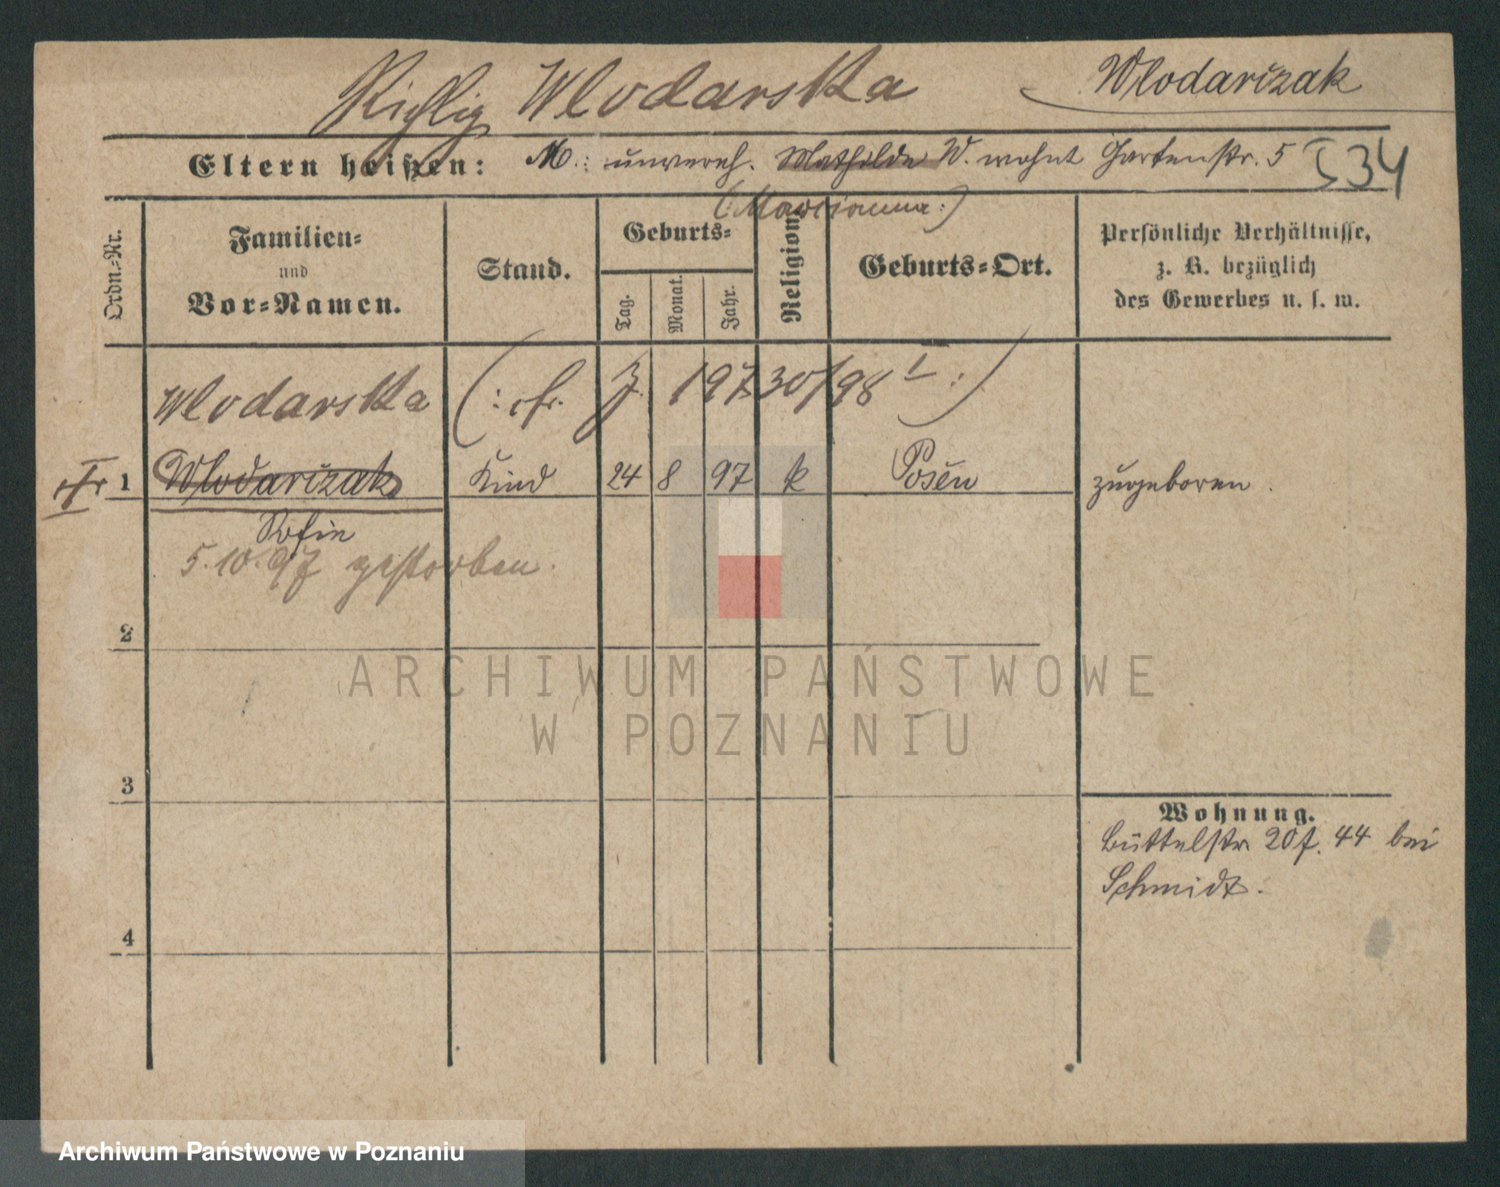 Richtig Wlodarska Wlodarizak
Eltern heißen: M.: unvereh. Mathilde W. wohnt Gartenstr. 5 534
(Marianna:)
Ordn.-Nr.
Familien-
und
Vor-Namen.
Stand.
Geburts-
Tag.
Monat.
Jahr.
Religion.
Geburts-Ort.
Persönliche Verhältnisse,
z. B. bezüglich
des Gewerbes u. s. w.
Wlodarska (: cfr. J. 19730/98 :)
1 Wlodarizak Kind 24 8 97 k Posen zugeboren.
Sofie
5.10.97 gestorben.
2
ARCHIWUM PAŃSTWOWE
W POZNANIU
3
Wohnung.
Büttelstr 20 f. 44 bei
Schmidt.
4
Archiwum Państwowe w Poznaniu